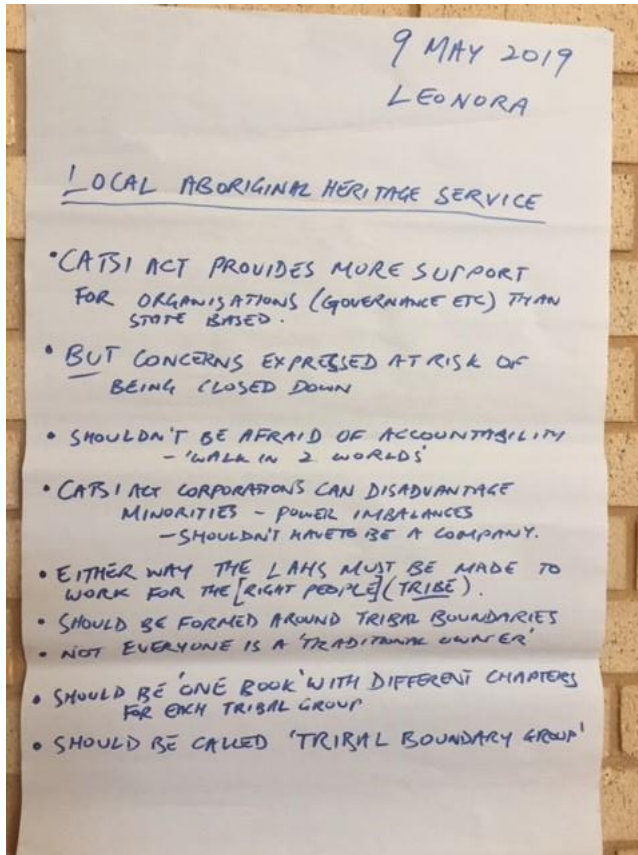 9 MAY 2019
LEONORA
LOCAL ABORIGINAL HERITAGE SERVICE
• CATSI ACT PROVIDES MORE SUPPORT
FOR ORGANISATIONS (GOVERNANCE ETC) THAN
STATE BASED.
• BUT CONCERNS EXPRESSED AT RISK OF
BEING CLOSED DOWN
• SHOULDN'T BE AFRAID OF ACCOUNTABILITY
- 'WALK IN 2 WORLDS'
• CATSI ACT CORPORATIONS CAN DISADVANTAGE
MINORITIES - POWER IMBALANCES
- SHOULDN'T HAVE TO BE A COMPANY.
• EITHER WAY THE LAHS MUST BE MADE TO
WORK FOR THE [RIGHT PEOPLE] (TRIBE).
• SHOULD BE FORMED AROUND TRIBAL BOUNDARIES
• NOT EVERYONE IS A 'TRADITIONAL OWNER'
• SHOULD BE 'ONE BOOK' WITH DIFFERENT CHAPTERS
FOR EACH TRIBAL GROUP
• SHOULD BE CALLED 'TRIBAL BOUNDARY GROUP'